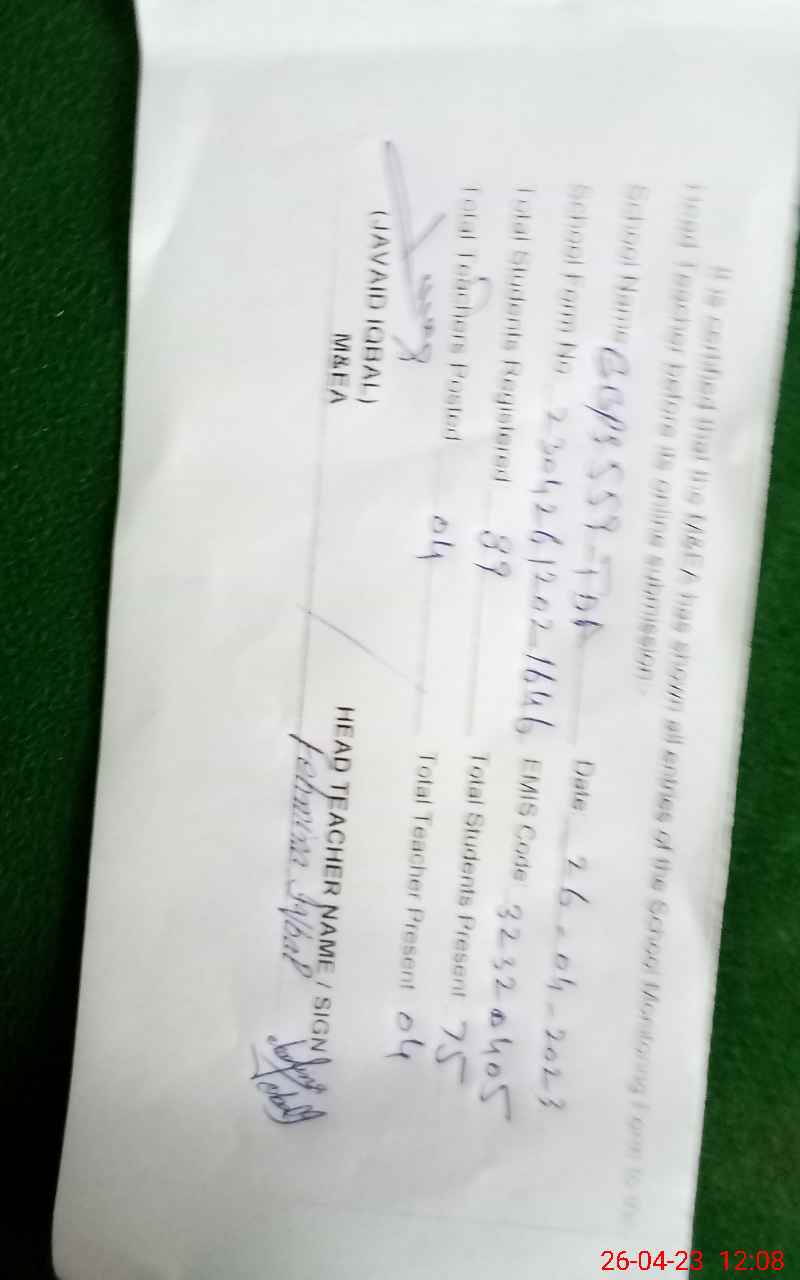 It is certified that the M&EA has shown all entries of the School Monitoring Form to the
Head Teacher before its online submission:-
School Name GGPS 559-TDA Date: 26-04-2023
School Form No. 2304261202-1646 EMIS Code: 32320405
Total Students Registered 89 Total Students Present 75
Total Teachers Posted 04 Total Teacher Present 04
(JAVAID IQBAL)
M&EA
HEAD TEACHER NAME / SIGN
Iqbal
26-04-23 12:08